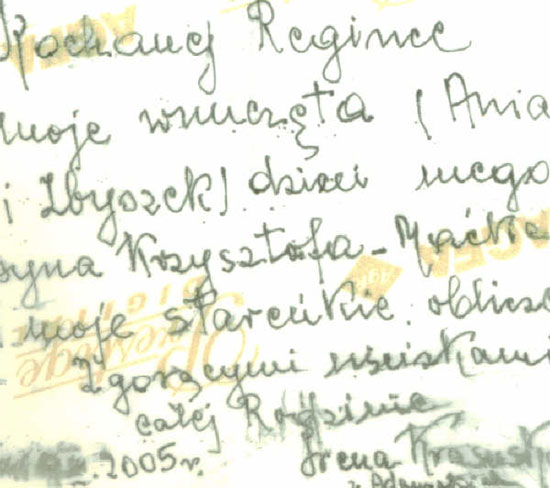 Kochanej Regince
moje wnuczęta (Ania
i Zbyszek) dzieci mego
syna Krzysztofa - Maćka
i moje stareńkie oblicze
Z gorącymi uściskami
całej Rodzinie
2005r. Irena